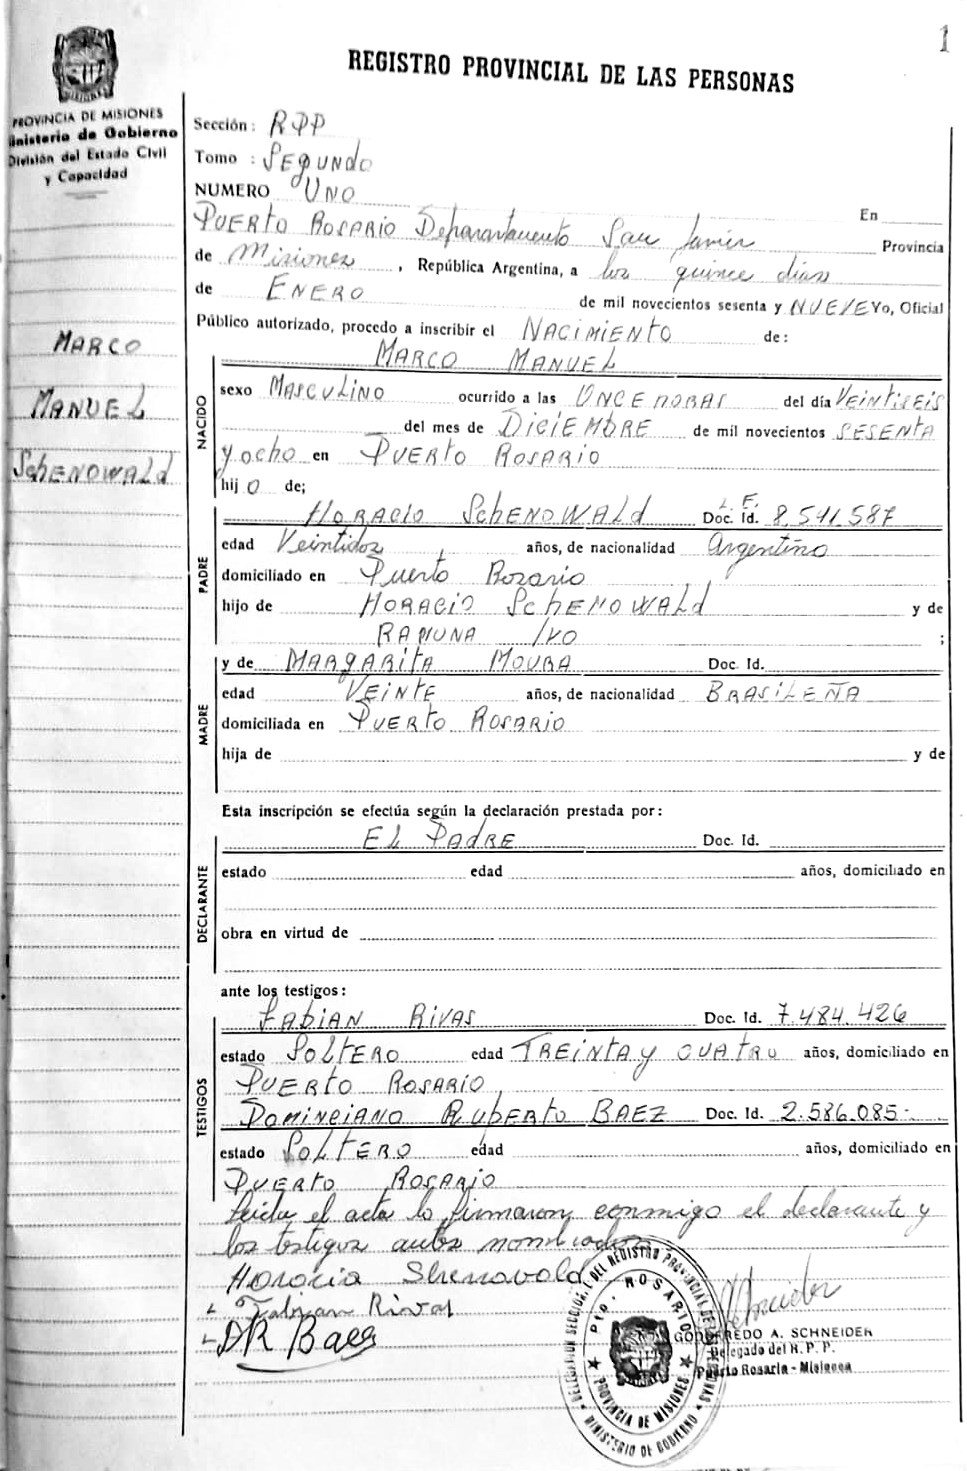 1
REGISTRO PROVINCIAL DE LAS PERSONAS
PROVINCIA DE MISIONES
Ministerio de Gobierno
División del Estado Civil
y Capacidad
Sección: RPP
Tomo: SEGUNDO
NUMERO UNO
En
PUERTO ROSARIO Departamento San Javier Provincia
de Misiones, República Argentina, a los quince días
de ENERO de mil novecientos sesenta y NUEVE Yo, Oficial
Público autorizado, procedo a inscribir el NACIMIENTO de:
MARCO
MANUEL
SchENOWALd
MARCO MANUEL
NACIDO
sexo MASCULINO ocurrido a las ONCE HORAS del día VEINTISEIS
del mes de DICIEMBRE de mil novecientos SESENTA
y ocho en PUERTO ROSARIO
hijo de;
PADRE
HORACIO SchENOWALd L.E. Doc. Id. 8.541.587
edad Veintidos años, de nacionalidad Argentino
domiciliado en Puerto Rosario
hijo de HORACIO SchENOWALd y de
RAMUNA IVO ;
MADRE
y de MARGARITA MOURA Doc. Id.
edad VEINTE años, de nacionalidad BRASILEÑA
domiciliada en PUERTO ROSARIO
hija de y de
Esta inscripción se efectúa según la declaración prestada por:
DECLARANTE
EL PADRE Doc. Id.
estado edad años, domiciliado en
obra en virtud de
ante los testigos:
TESTIGOS
FABIAN RIVAS Doc. Id. 7.484.426
estado SOLTERO edad TREINTA y CUATRO años, domiciliado en
PUERTO ROSARIO
DOMINCIANO RUPERTO BAEZ Doc. Id. 2.586.085-
estado SOLTERO edad años, domiciliado en
PUERTO ROSARIO
Leida el acta la firmaron conmigo el declarante y
los testigos antes nombrados
Horacio Shenovald
Fabian Rivas
DR Baes
DELEGACION SECCIONAL DEL REGISTRO PROVINCIAL DE LAS PERSONAS
Pto. ROSARIO
PROVINCIA DE MISIONES
MINISTERIO DE GOBIERNO
GODOFREDO A. SCHNEIDER
Delegado del R. P. P.
Puerto Rosario - Misiones